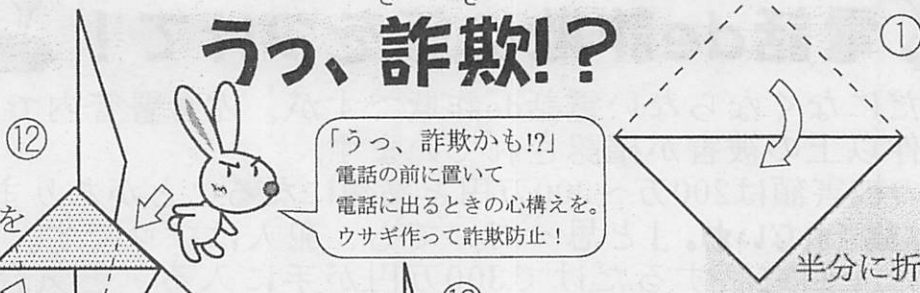 うっ、詐欺!?
①
⑫
「うっ、詐欺かも!?」
電話の前に置いて
電話に出るときの心構えを。
ウサギ作って詐欺防止！
を
半分に折